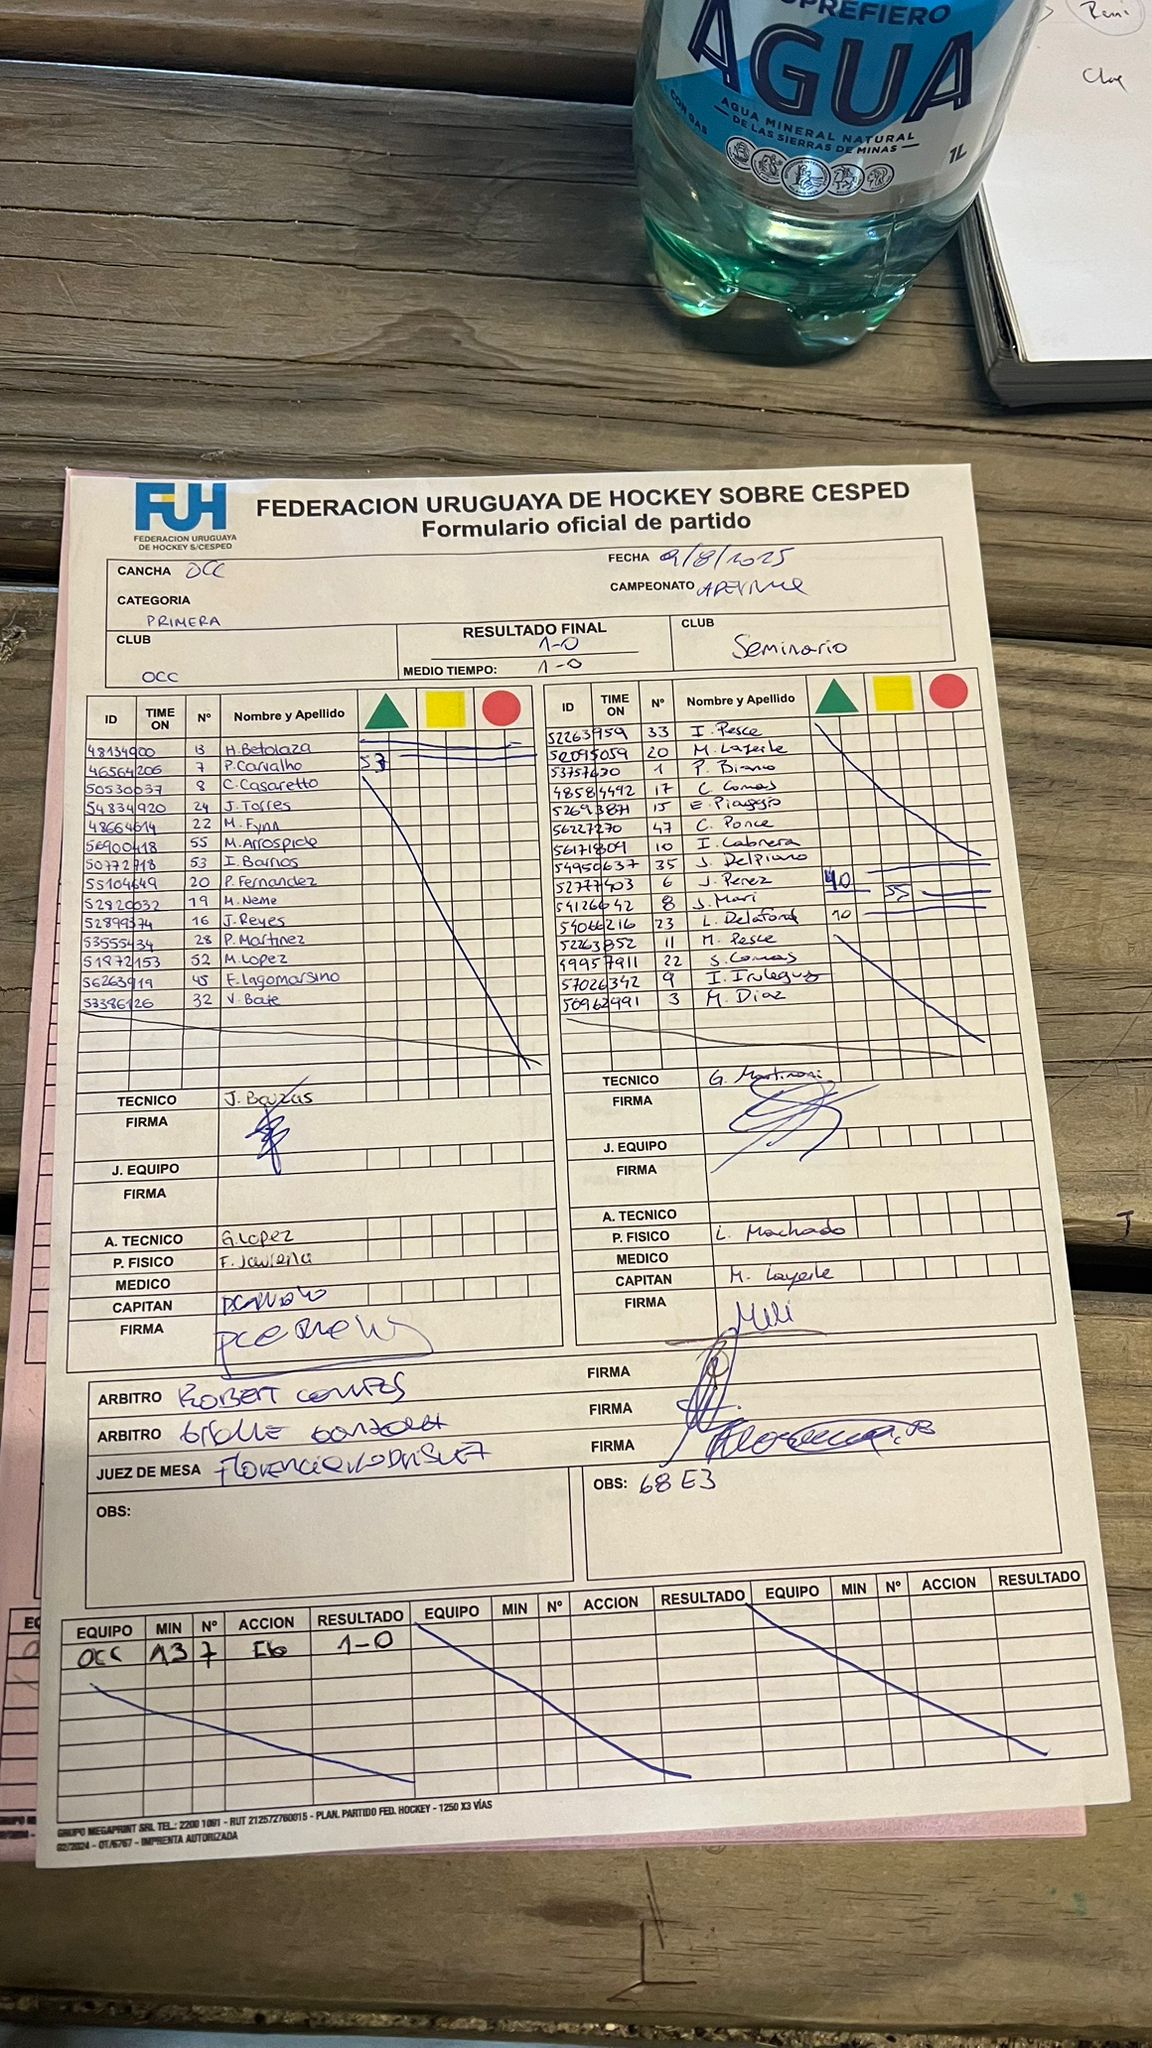 OPREFIERO
AGUA
CON GAS
AGUA MINERAL NATURAL
DE LAS SIERRAS DE MINAS
1L
FUH
FEDERACION URUGUAYA
DE HOCKEY S/CESPED
FEDERACION URUGUAYA DE HOCKEY SOBRE CESPED
Formulario oficial de partido
CANCHA OCC
FECHA 9/8/2025
CATEGORIA PRIMERA
CAMPEONATO
CLUB OCC
RESULTADO FINAL 1-0
MEDIO TIEMPO: 1-0
CLUB Seminario
ID TIME ON Nº Nombre y Apellido
48134900 13 H. Betolaza
46564206 7 P. Carvalho 53
50530037 8 C. Casaretto
54834920 24 J. Torres
48664614 22 M. Fynn
56900418 55 M. Arrospide
50772718 53 I. Barrios
55104649 20 P. Fernandez
52820032 19 M. Neme
52899374 16 J. Reyes
53555434 28 P. Martinez
51872153 52 M. Lopez
56263919 45 F. Lagomarsino
53386126 32 V. Bate
TECNICO J. Bazas
FIRMA
J. EQUIPO
FIRMA
A. TECNICO G. Lopez
P. FISICO F.
MEDICO
CAPITAN
FIRMA
ID TIME ON Nº Nombre y Apellido
52263959 33 I. Pesce
52095059 20 M. Layerle
53757630 1 P. Bianco
48584492 17 C. Comas
52693871 15 E. Piaggio
56227270 47 C. Ponce
56171809 10 I. Cabrera
54950637 35 J. Delpiano
52777403 6 J. Perez 40 55
54126642 8 J. Mari
54066216 23 L. Delafond 10
52263852 11 M. Pesce
49957911 22 S. Comas
57026342 9 I. Irulegui
50962991 3 M. Diaz
TECNICO G. Martinoni
FIRMA
J. EQUIPO
FIRMA
A. TECNICO
P. FISICO L. Machado
MEDICO
CAPITAN M. Layerle
FIRMA Mili
ARBITRO ROBERT
FIRMA
ARBITRO
FIRMA
JUEZ DE MESA FLORENCIA RODRIGUEZ
FIRMA
OBS:
OBS: 68 E3
EQUIPO MIN Nº ACCION RESULTADO EQUIPO MIN Nº ACCION RESULTADO EQUIPO MIN Nº ACCION RESULTADO
OCC 13 7 1-0
GRUPO MEGAPRINT SRL TEL.: 2200 1091 - RUT 212572760015 - PLAN. PARTIDO FED. HOCKEY - 1250 X3 VÍAS
02/2024 - OT/6767 - IMPRENTA AUTORIZADA